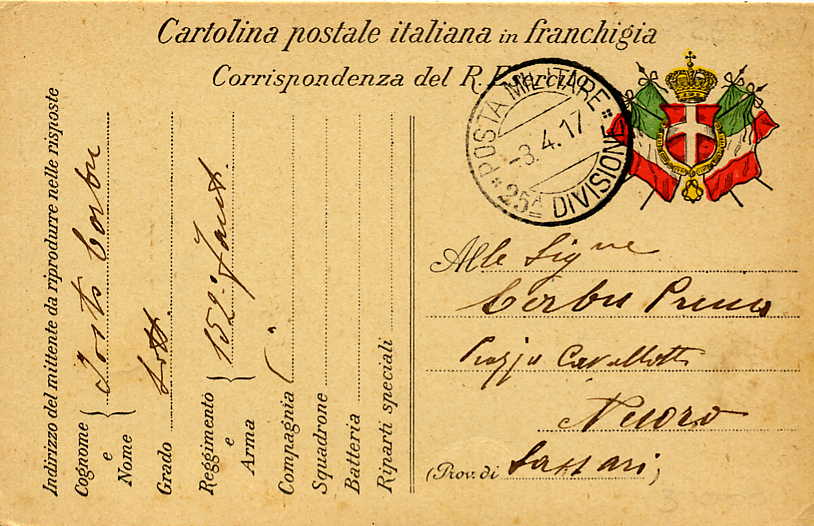 Cartolina postale italiana in franchigia
Corrispondenza del R. Esercito
POSTA MILITARE
25ª DIVISIONE
-3.4.17
Indirizzo del mittente da riprodurre nelle risposte
Cognome e Nome
Grado Sott.
Reggimento e Arma 152º Fant.
Compagnia
Squadrone
Batteria
Riparti speciali
Alle Sig.ne
Piazza Cavallotti
Nuoro
(Prov. di Sassari)